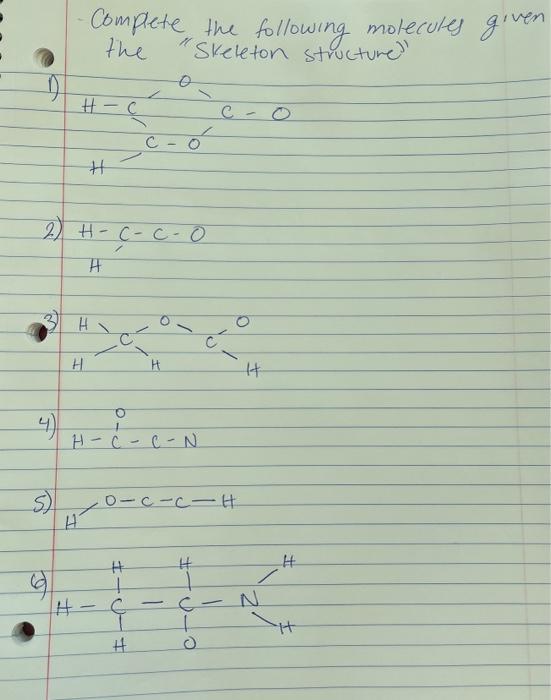 - Complete the following molecules given
the "Skeleton structure"
1)
O
H - C C - O
C - O
H
2) H - C - C - O
H
3) H O O
C C
H H H
4) O
H - C - C - N
5) O - C - C - H
H
6) H H H
H - C - C - N
H O H